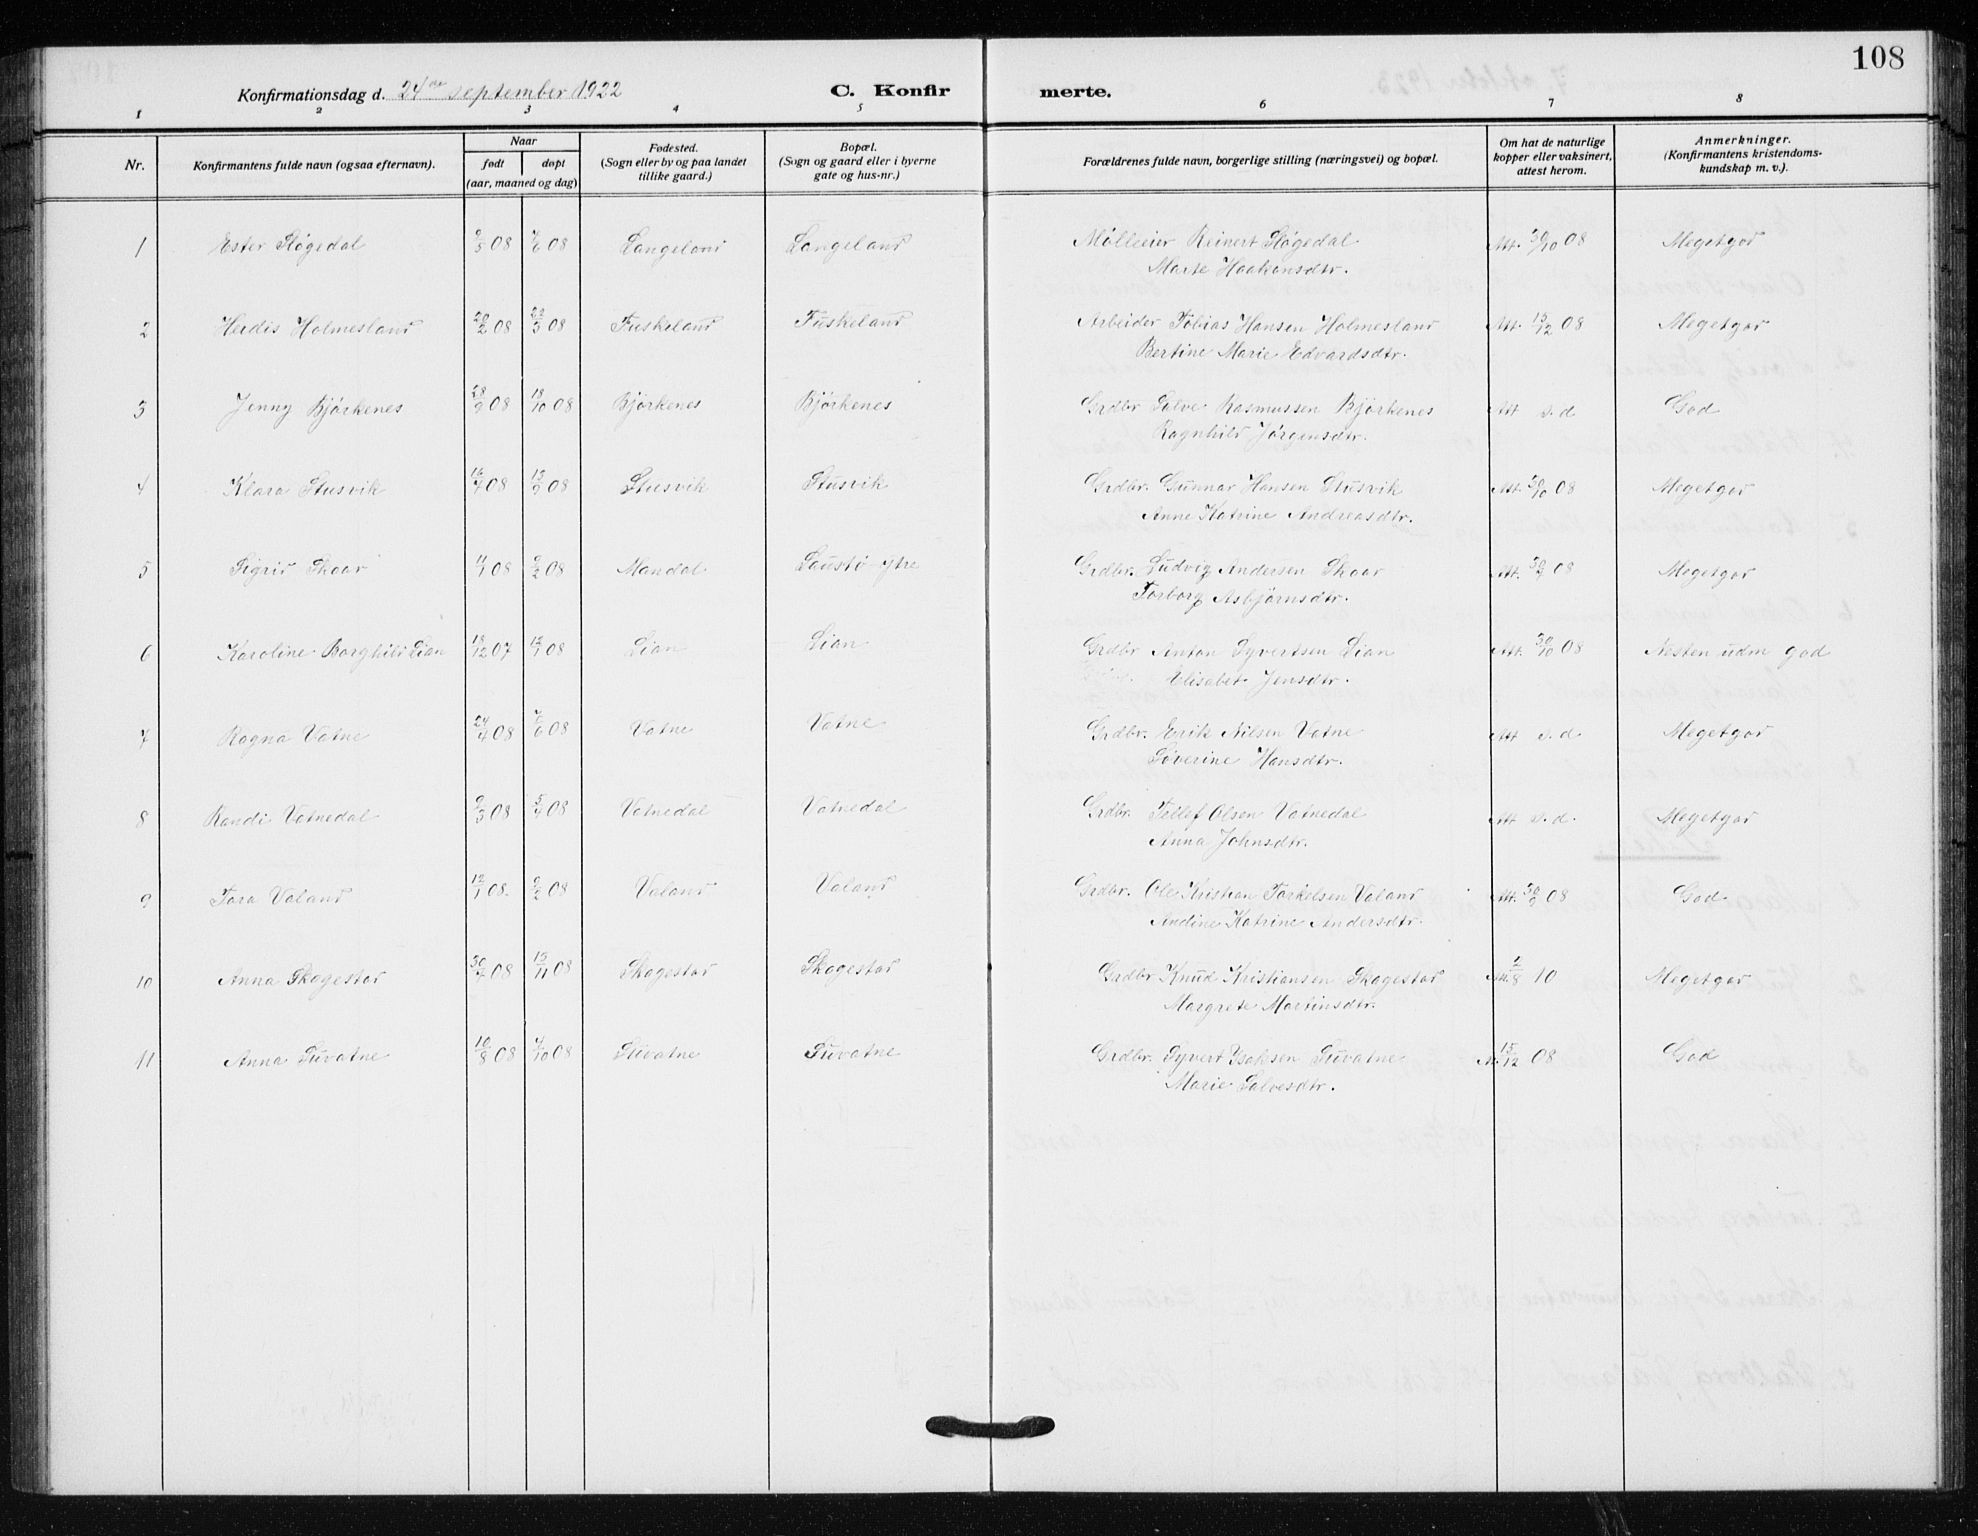 108
Konfirmationsdag d. 24de september 1922 C. Konfir merte.
1 2 3 4 5 6 7 8
Nr. Konfirmantens fulde navn (ogsaa efternavn). Naar født døpt (aar, maaned og dag) Fødested. (Sogn eller by og paa landet tillike gaard.) Bopæl. (Sogn og gaard eller i byerne gate og hus-nr.) Forældrenes fulde navn, borgerlige stilling (næringsvei) og bopæl. Om hat de naturlige kopper eller vaksinert, attest herom. Anmerkninger. (Konfirmantens kristendoms-kundskap m. v.).
1 Ester Støgedal 9/5 08 08 Langeland Langeland Mølleeier Reinert Støgedal Att. 30/10 08 Megetgod
Marte Haakonsdtr.
2 Herdis Holmesland 20/2 08 22/3 08 Fuskeland Fuskeland Arbeider Tobias Hansen Holmesland Att. 15/12 08 Megetgod
Bertine Marie Edvardsdtr.
3 Jenny Bjørkenes 28/9 08 18/10 08 Bjørkenes Bjørkenes Grdbr Salve Rasmussen Bjørkenes Att s. d God
Ragnhild Jørgensdtr.
4 Klara Stusvik 16/7 08 13/9 08 Stusvik Stusvik Grdbr. Gunnar Hansen Stusvik Att. 30/10 08 Megetgod
Anne Katrine Andreasdtr.
5 Sigrid Skoar 4/1 08 9/2 08 Mandal Laustø ytre Grdbr. Ludvig Andersen Skoar Att. 30/9 08 Megetgod
Torborg Asbjørnsdtr.
6 Karoline Borghild Lian 18/12 07 08 Lian Lian Grdbr Anton Syvertsen Lian Att. 30/10 08 Nesten udm god
Elisabet Jensdtr.
7 Ragna Vatne 24/4 08 7/6 08 Vatne Vatne Grdbr. Erik Nilsen Vatne Att s. d. Megetgod
Søverine Hansdtr.
8 Randi Vatnedal 9/3 08 5/4 08 Vatnedal Vatnedal Grdbr. Tellef Olsen Vatnedal Att s. d. Megetgod
Anna Johnsdtr.
9 Tora Valand 12/1 08. 9/2 08 Valand Valand Grdbr. Ole Kristian Torkelsen Valand Att. 30/9 08 God
Andine Katrine Andersdtr.
10 Anna Skagestad 30/7 08 15/11 08 Skagestad Skagestad Grdbr Knud Kristiansen Skagestad Att. 2/8 10 Megetgod
Margrete Martinsdtr.
11 Anna Tuvatne 10/8 08 4/10 08 Tuvatne Tuvatne Grdbr. Syvert Isaksen Tuvatne 15/12 08 God
Marie Salvesdtr.